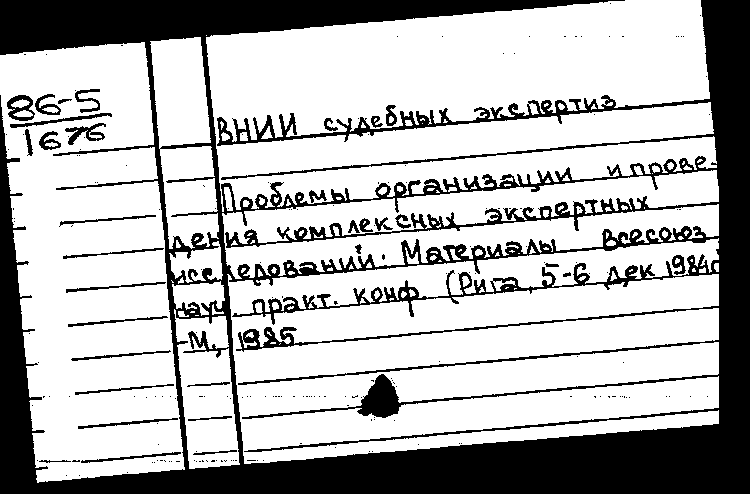 86-5
1676
ВНИИ судебных экспертиз
Проблемы организации и прове-
дения комплексных экспертных
исследований: Материалы всесоюз
науч. практ. конф. (Рига, 5-6 дек 1984г
-М., 1985.